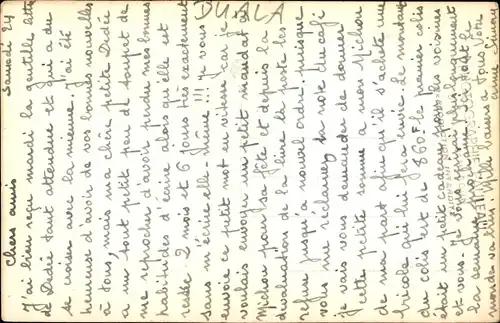 DUALA
Samedi 24
Chers amis
J'ai bien reçu mardi la gentille lettre
de Dédié tant attendue et qui a du
se croiser avec la mienne. J'ai été
heureuse d'avoir de vos bonnes nouvelles
à tous, mais ma chère petite Dédée
a un tout petit peu de toupet de
me reprocher d'avoir perdu mes bonnes
habitudes d'écrire alors qu'elle est
restée 2 mois et 6 jours très exactement
sans m'écrire elle-même!!! Je vous
envoie ce petit mot en vitesse car je
voulais envoyer un petit mandat à
Michou pour sa fête et depuis la
dévaluation de la livre la poste les
refuse jusqu'à nouvel ordre, puisque
vous me réclamez la note du café
je vais vous demander de donner
cette petite somme à mon Michou
de ma part afin qu'il s'achète une
bricole qui lui fera plaisir. Le montant
du colis est de 860F. le premier colis
était un petit cadeau pour les voisines
et vous. Je vous écrirai plus longuement
la semaine prochaine
Mille baisers à tous